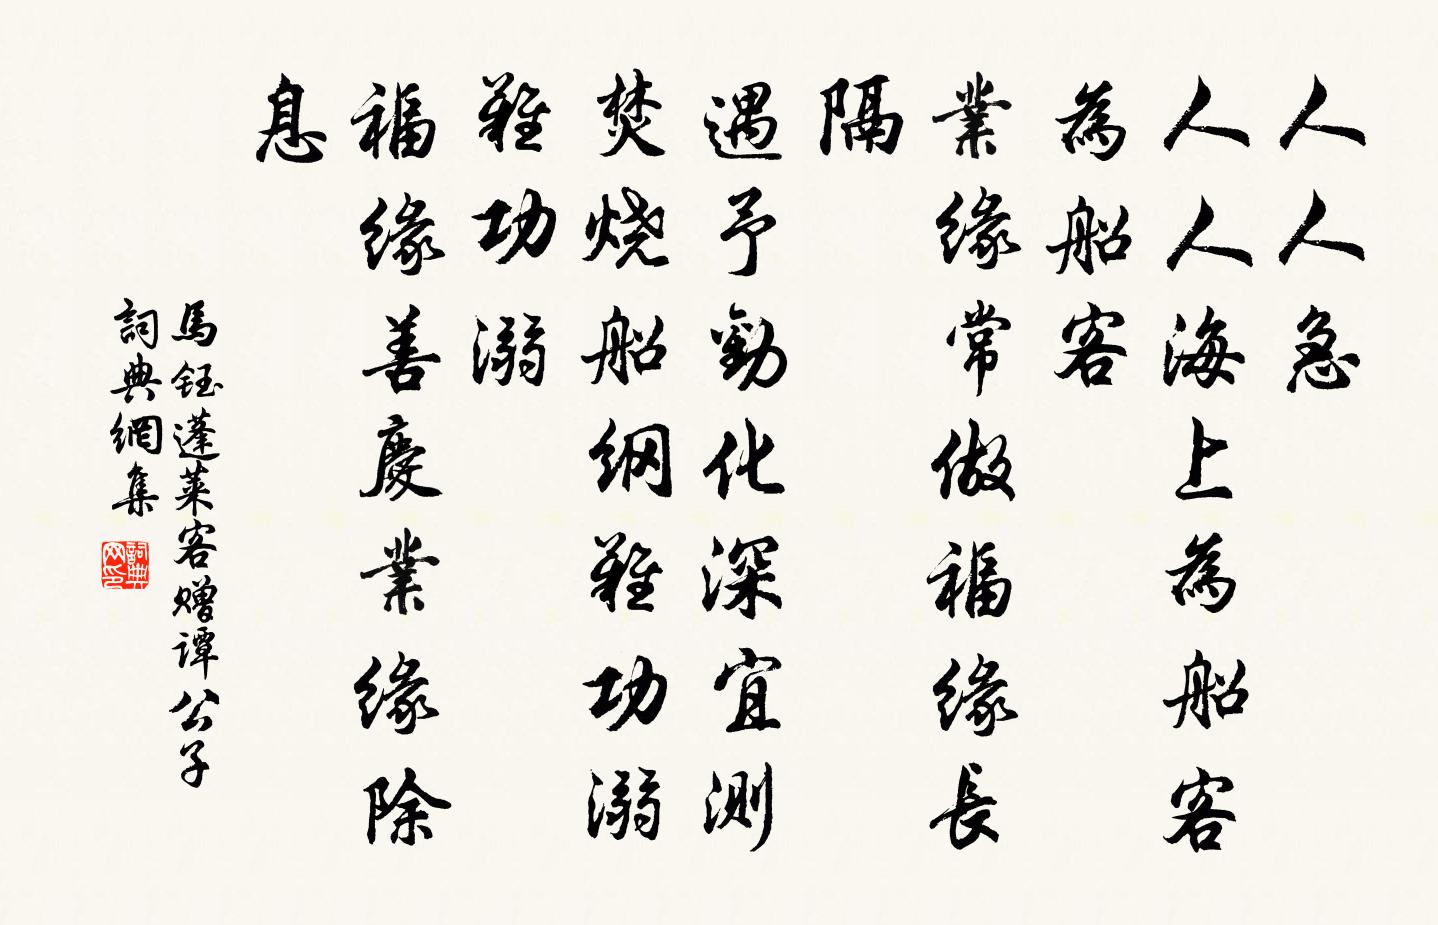 人人急
人人海上為船客
為船客
業緣常做福緣長
隔
遇予勸化深宜測
焚烧船網難功溺
難功溺
福緣善慶業緣除
息
馬鈺蓬萊客赠譚公子
詞典網集
詞典网印